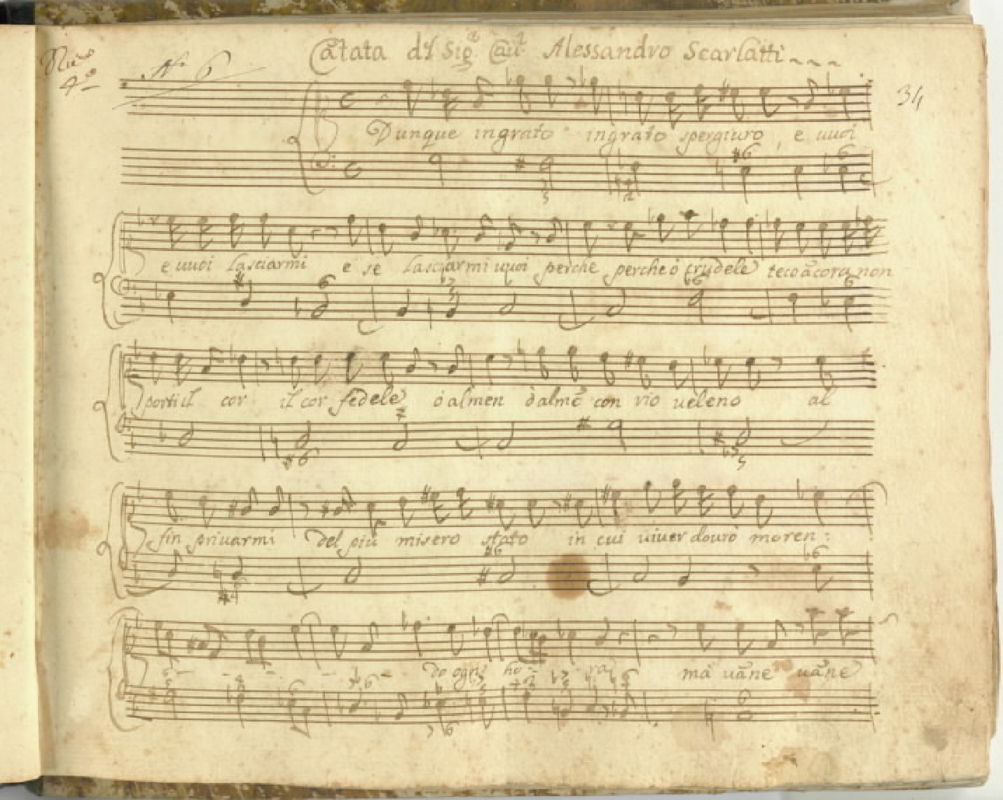 Nuo 4o
No 6
Cãtata dl Sigr Caur Alessandro Scarlatti
34
Dunque ingrato ingrato spergiuro, e uuoi
e uuoi lasciarmi e se lasciarmi uuoi perche perche ò crudele teco ãcora non
porti il cor il cor fedele ò almen ò almẽ con rio ueleno al
fin priuarmi del più misero stato in cui uiuer dourò moren:
do ogni ho - ra mà uãne uãne